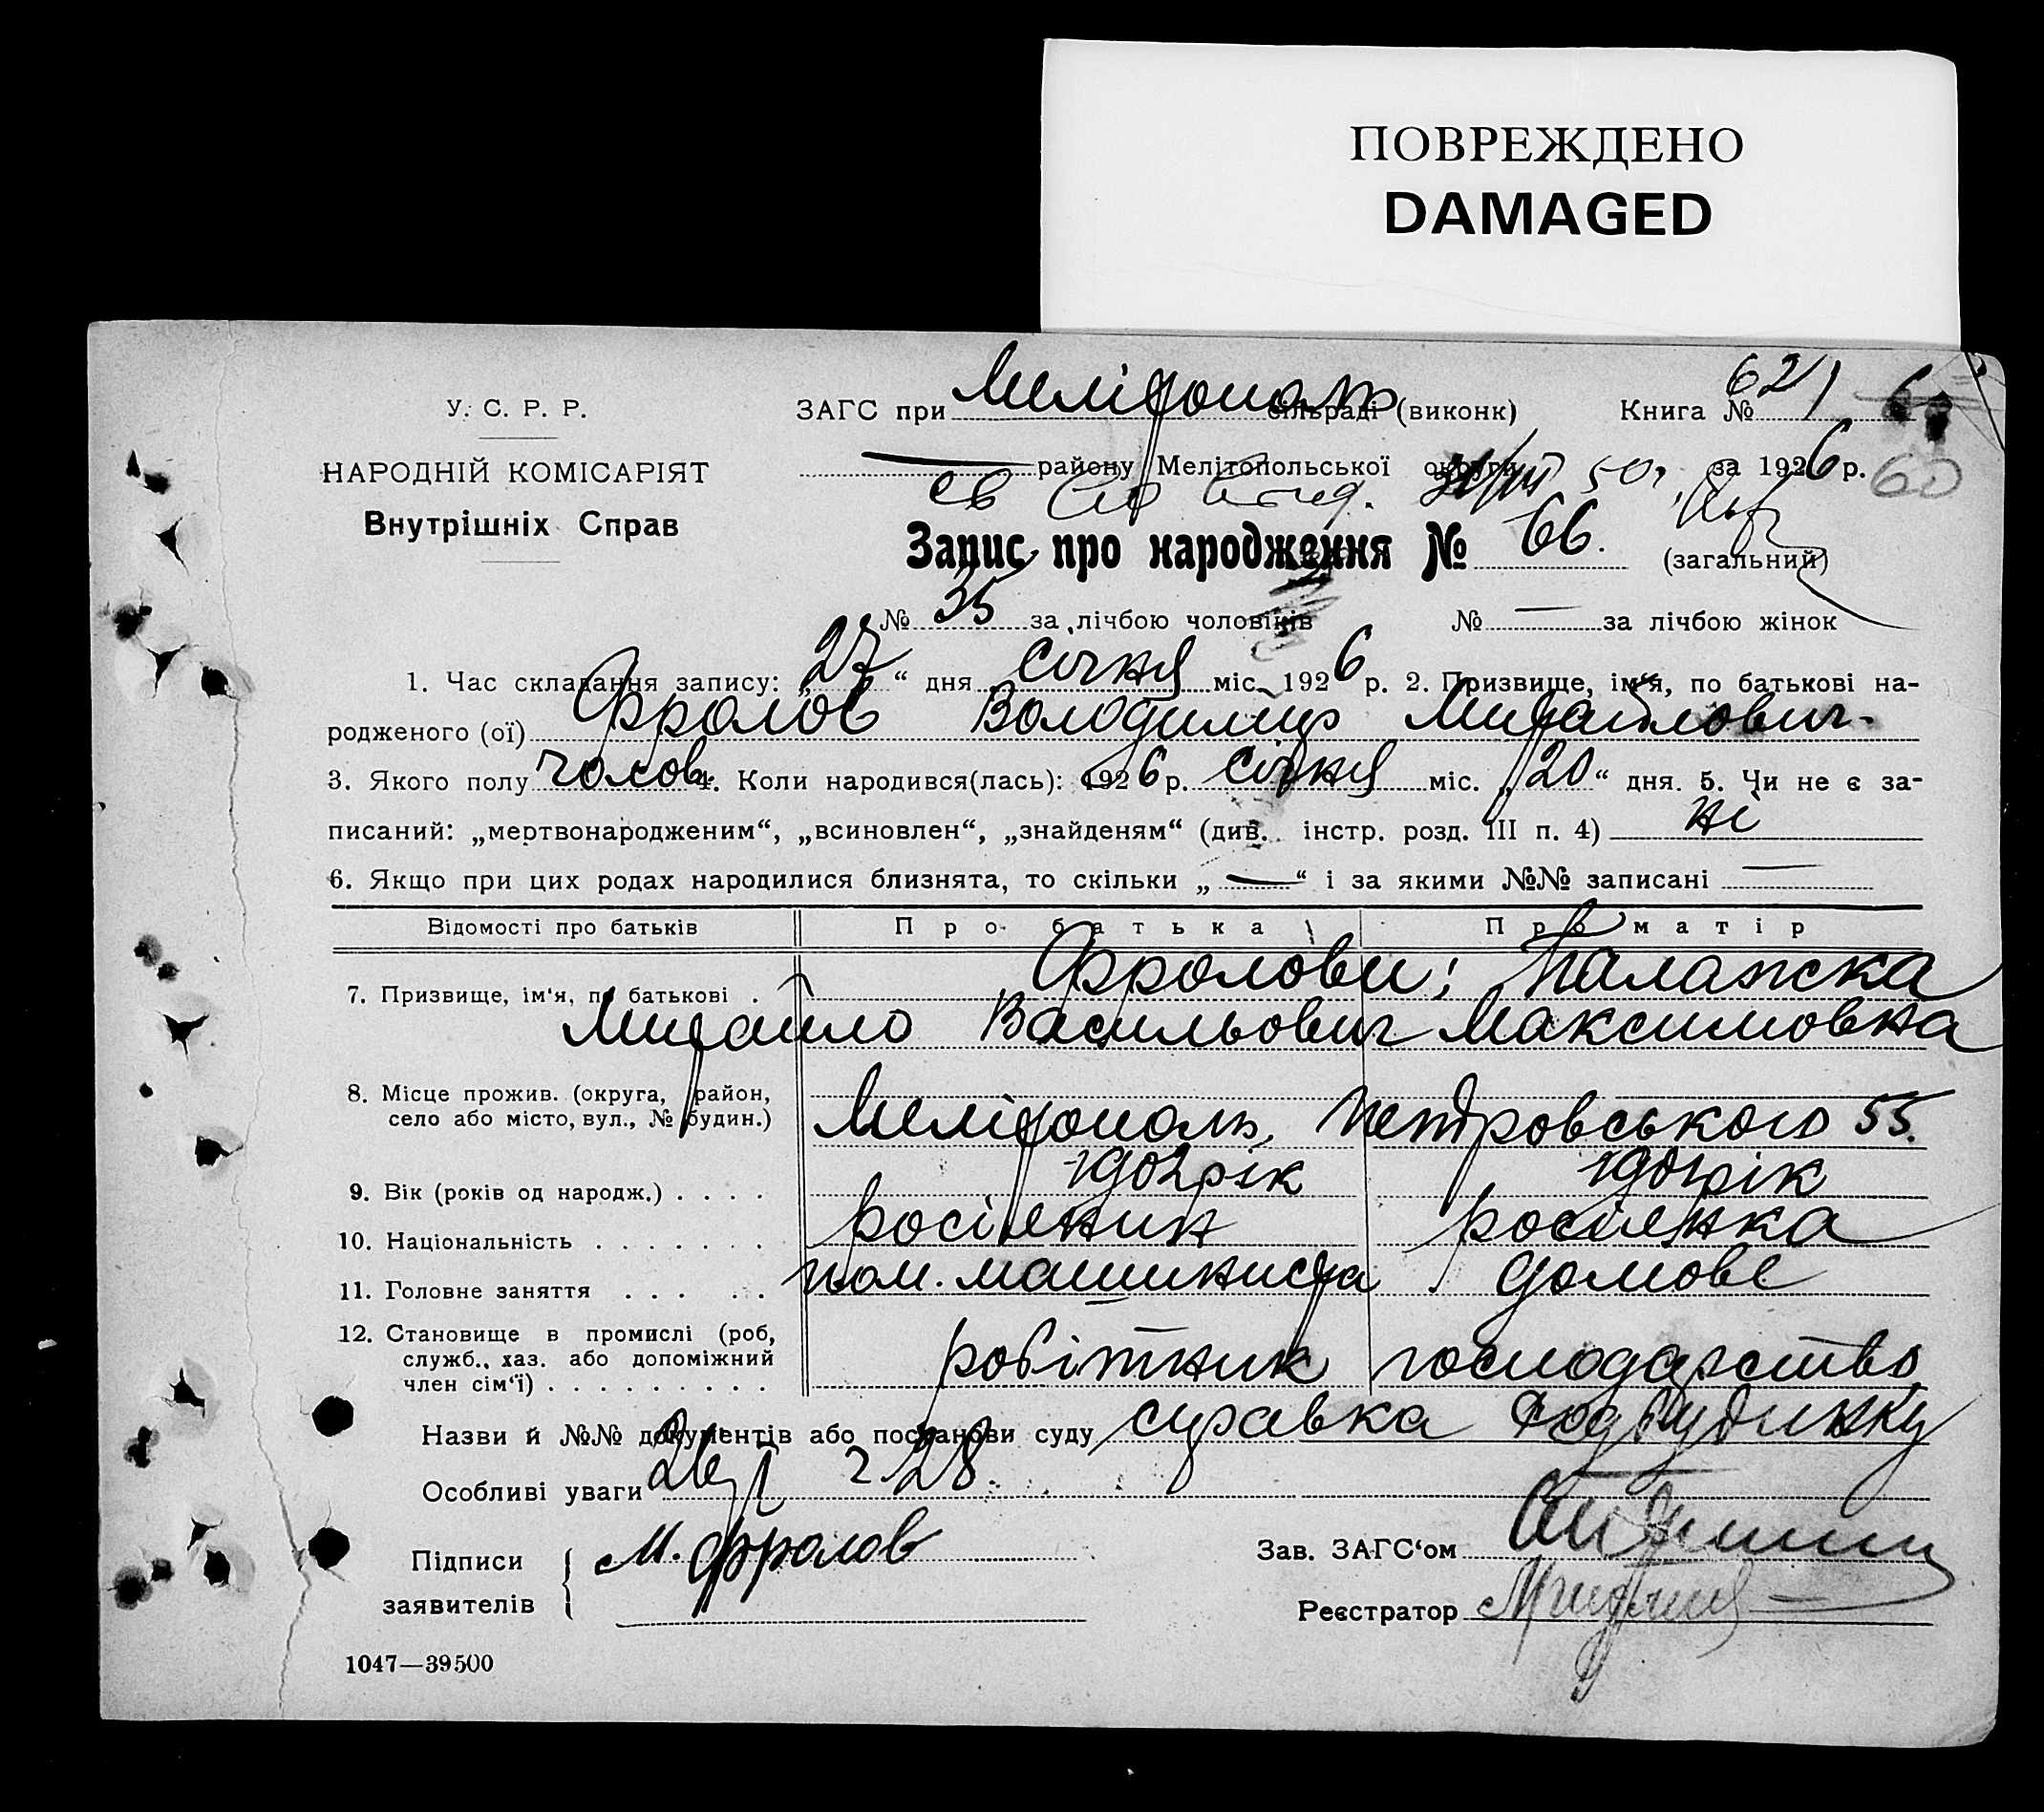 ПОВРЕЖДЕНО
DAMAGED
У. С. Р. Р.
НАРОДНІЙ КОМІСАРІЯТ
Внутрішніх Справ
ЗАГС при Мелітополь сільраді (виконк) Книга № 621
— району Мелітопольської округи за 1926 р. 60
Запис про народження № 66. (загальний)
№ 35 за лічбою чоловіків № — за лічбою жінок
1. Час складання запису: „27“ дня січня міс. 1926 р. 2. Призвище, ім'я, по батькові на-
родженого (ої) Фролов Володимир Михайлович.
3. Якого полу чолов. 4. Коли народився(лась): 1926 р. січня міс. „20“ дня. 5. Чи не є за-
писаний: „мертвонародженим“, „всиновлен“, „знайденям“ (див. інстр. розд. III п. 4) ні
6. Якщо при цих родах народилися близнята, то скільки „—“ і за якими №№ записані —
Відомості про батьків Про батька Про матір
Фролови; Палажка
7. Призвище, ім'я, по батькові .
Михайло Васильович Максимовна
8. Місце прожив. (округа, район,
село або місто, вул., № будин.) Мелітополь, Петровського 55.
9. Вік (років од народж.) . . . . рік рік
10. Національність . . . . . . . росіянин росіянка
11. Головне заняття . . . . . пом. машиниста домове
12. Становище в промислі (роб,
служб., хаз. або допоміжний
член сім'ї) . . . . . . . . . робітник господарство
Назви й №№ документів або постанови суду справка
Особливі уваги 28.
Підписи
заявителів М. Фролов
Зав. ЗАГС'ом
Реєстратор
1047—39500